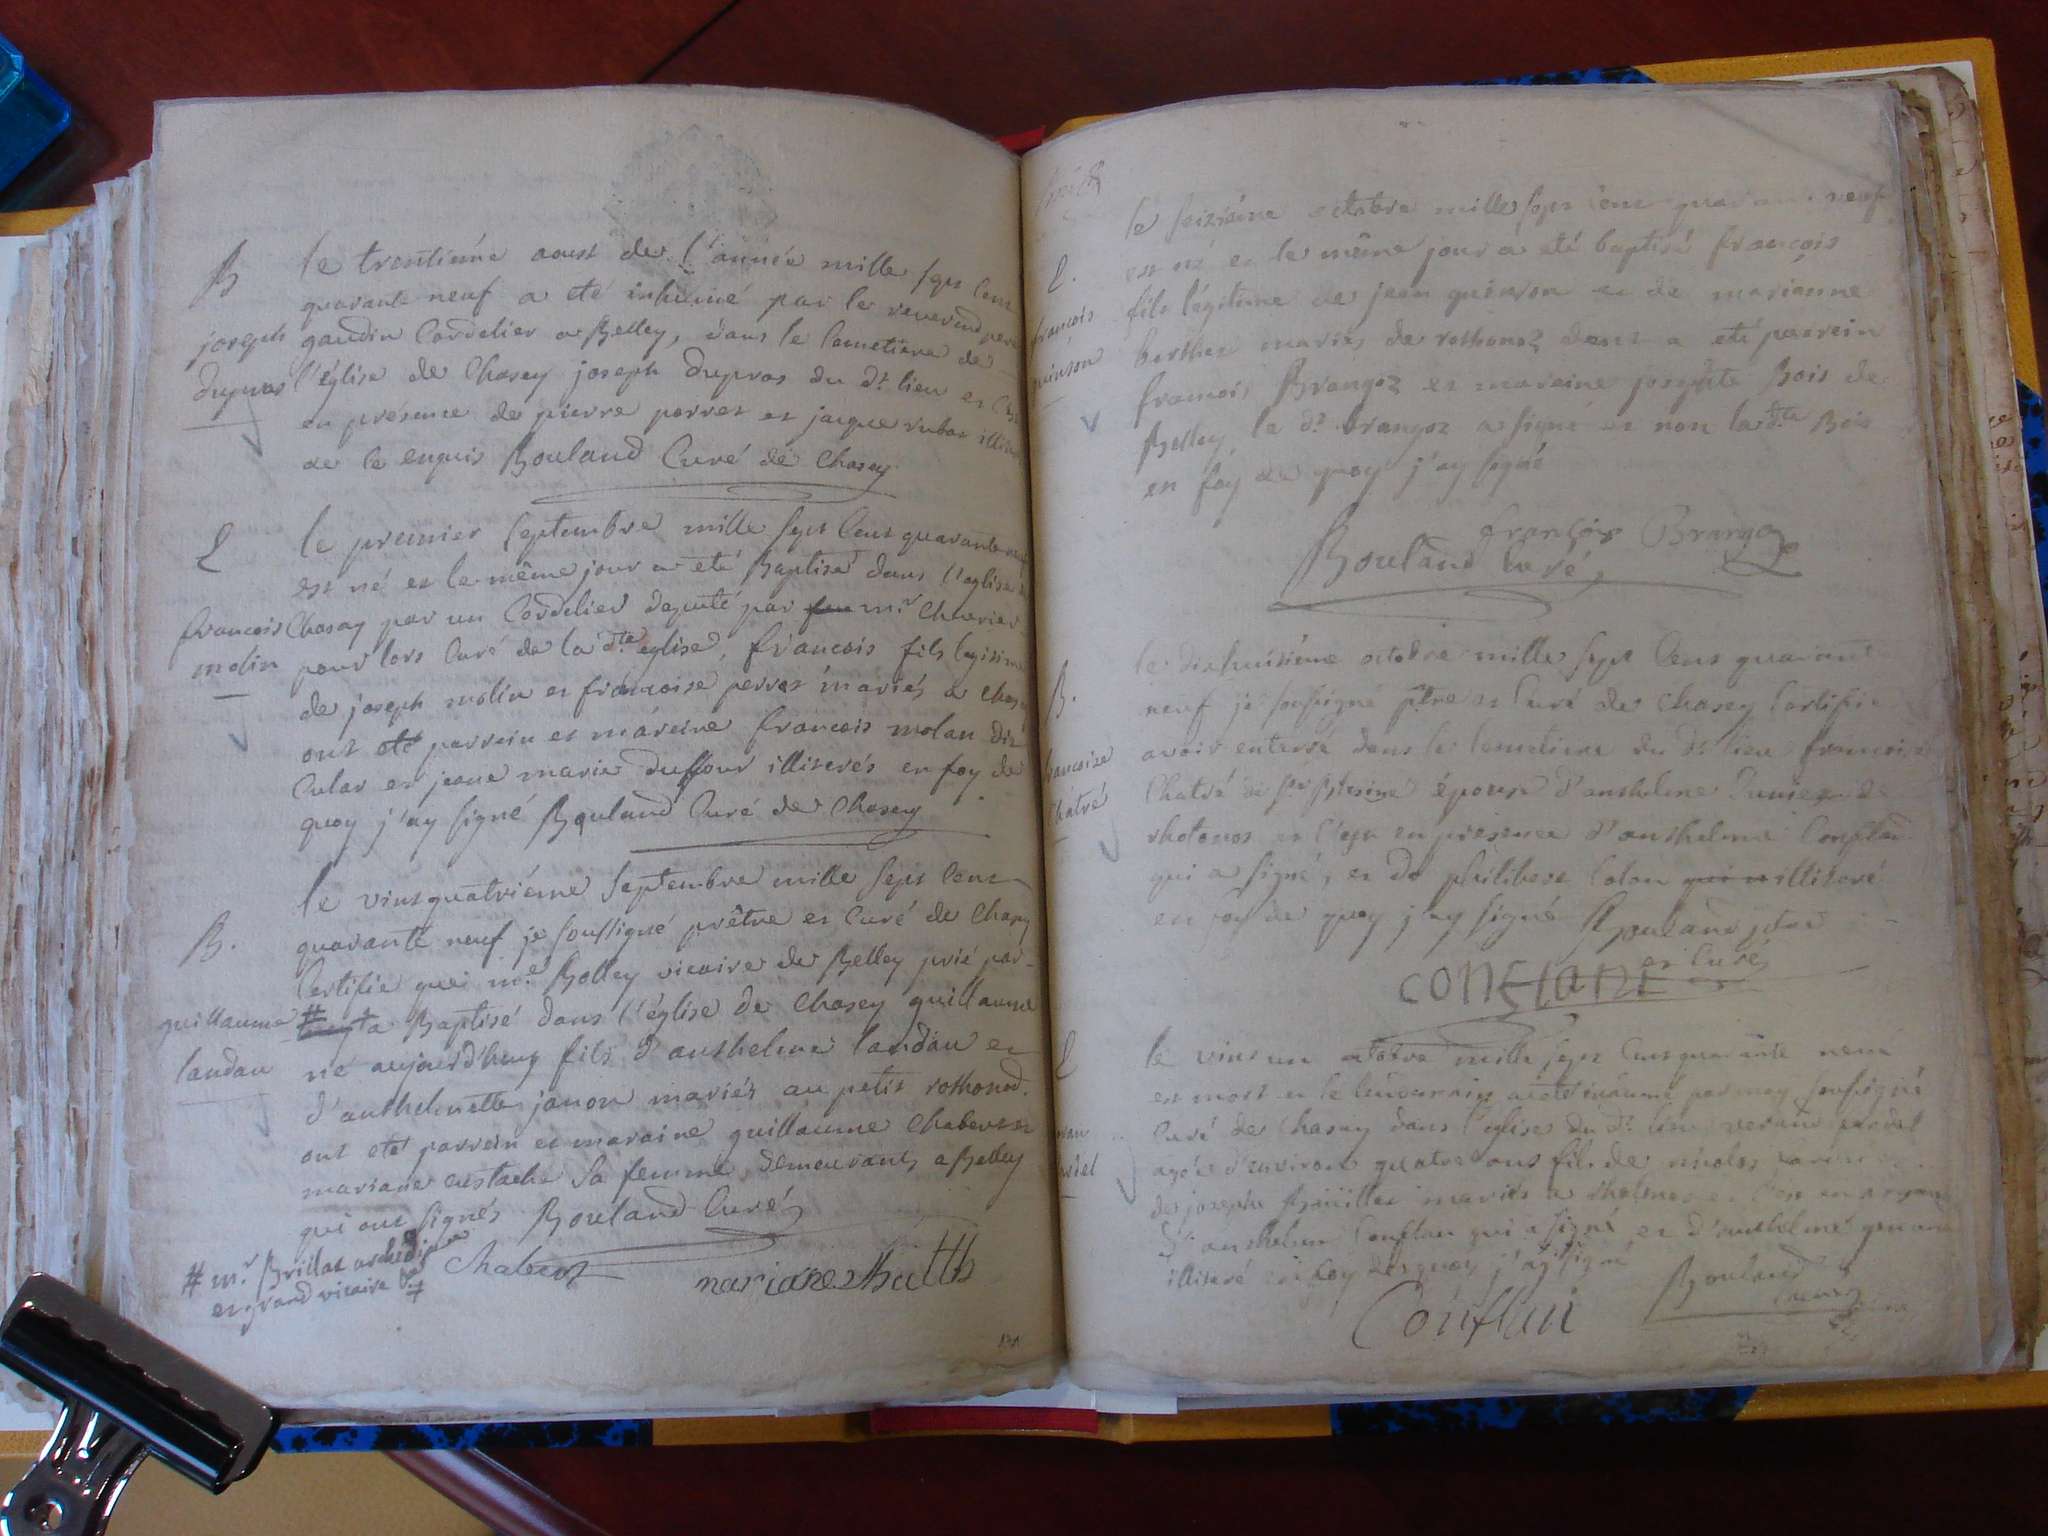 B
le trentiéme aoust de l'année mille sept cens
quarante neuf a eté inhumé par le reverend pere
joseph
gaudin Cordelier a Belley, dans le Cemetiere de
dupras
l'église de Chasey joseph dupras du dt. lieu et
en présence de pierre perret et jacque rubat
de le enquis Bouland Curé de Chasey
le premier septembre mille sept cens quarante neuf
est né et le même jour a eté Baptisé dans l'eglise
francois
Chasay par un Cordelier deputé par mr.
molin
pour lors Curé de la dte. eglise, francois fils legitime
de joseph molin et francoise perret mariés a
ont eté parrein et mareine francois molan
Cular et jeane marie duffour illiterés en foy de
quoy j'ay signé Bouland Curé de Chasey
le vint quatriéme septembre mille sept cens
B.
quarante neuf je soussigné prêtre et Curé de Chasey
Certifie que mr. Bolley vicaire de Belley prié par
guillaume
# a Baptisé dans l'église de Chasey guillaume
landau
né aujourd'huy fils d'anthelme landau et
d'anthelmette janon mariés au petit rothonod.
ont eté parrein et maraine guillaume Chabert et
mariane eustache sa femme demeurants a Belley
qui ont signés Bouland Curé
# mr. Brillat
et grand vicaire
Chabert
mariane
131
le seiziéme octobre mille sept cens quarante neuf
est né et le même jour a eté baptisé françois
françois
fils légitime de jean guinson et de marianne
guinson
berthet mariés de rothonoz dont a eté parrein
francois Brangoz et mareine josephte Bois de
Belley le dt. brangoz a signé et non la dte Bois
en foy de quoy j'ay signé
françois Brangoz
Bouland Curé
le dixhuitiéme octobre mille sept cens quarante
B.
neuf je soussigné ptre et Curé de Chasey Certifie
francoise
avoir enterré dans le Cemetiere du dt. lieu francoise
Chatré
Chatré de épouse d'anthelme
rhotonos et l'ay en présence d'anthelme Conflan
qui a signé, et de philibert Colon illiteré
en foy de quoy j'ay signé Bouland ptre
et Curé
CONFLANT
le vint un octobre mille sept cens quarante neuf
est mort et le a eté inhumé par moy soussigné
Curé de Chasay dans l'eglise du dt. lieu
agée d'environ quatre ans fil. de nicolas
de josephte mariés a
d'anthelme Conflan qui a signé et d'anthelme
illiteré en foy de quoy j'ay signé
Bouland
Curé
Conflan